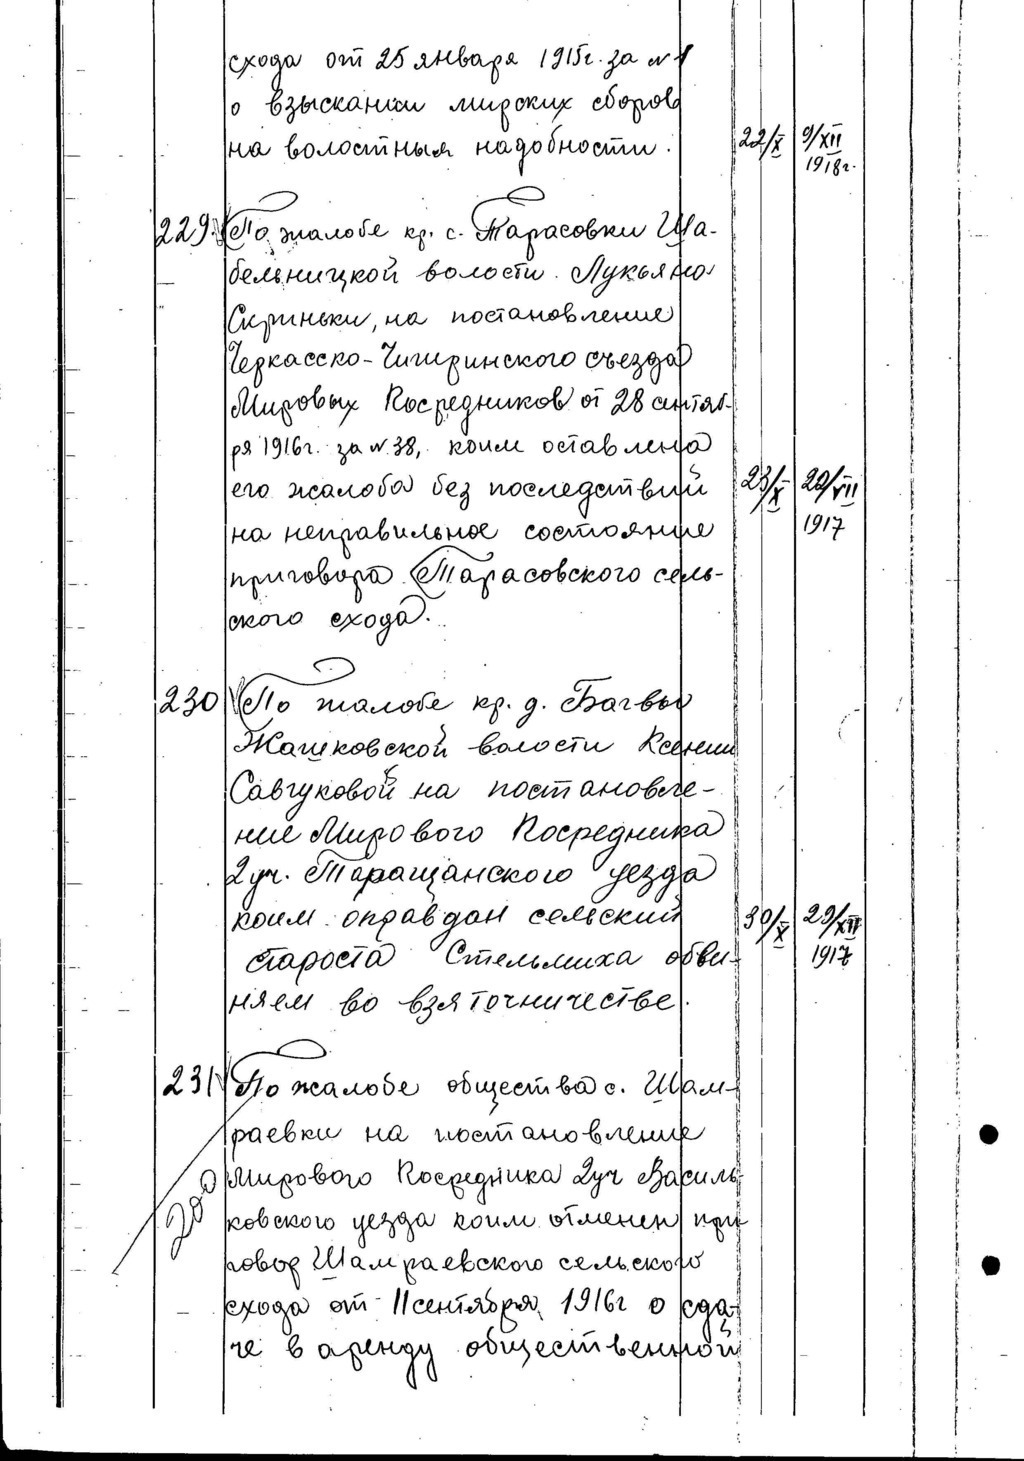 схода от 25 января 1915г. за №1
о взыскании мирских сборов
на волостныя надобности. 22/X 9/XII
1918г.
229. По жалобе кр. с. Тарасовки Ша-
бельницкой волости Лукьяна
Скриньки, на постановление
Черкасско-Чигиринского съезда
Мировых Посредников от 28 сентяб-
ря 1916г. за №38, коим оставлена
его жалоба без последствий 23/X 20/VII
на неправильное состояние 1917
приговора Тарасовского сель-
ского схода.
230 По жалобе кр. д. Багвы
Жашковской волости Ксении
Савчуковой на постановле-
ние Мирового Посредника
2 уч. Таращанского уезда
коим оправдан сельский 30/X 29/XII
староста Стельмиха обви- 1917
няем во взяточничестве.
231 По жалобе общества с. Шам-
раевки на постановление
Мирового Посредника 2 уч Василь-
200
ковского уезда коим отменен при
говор Шамраевского сельского
схода от 11 сентября 1916г о сда-
че в аренду общественной